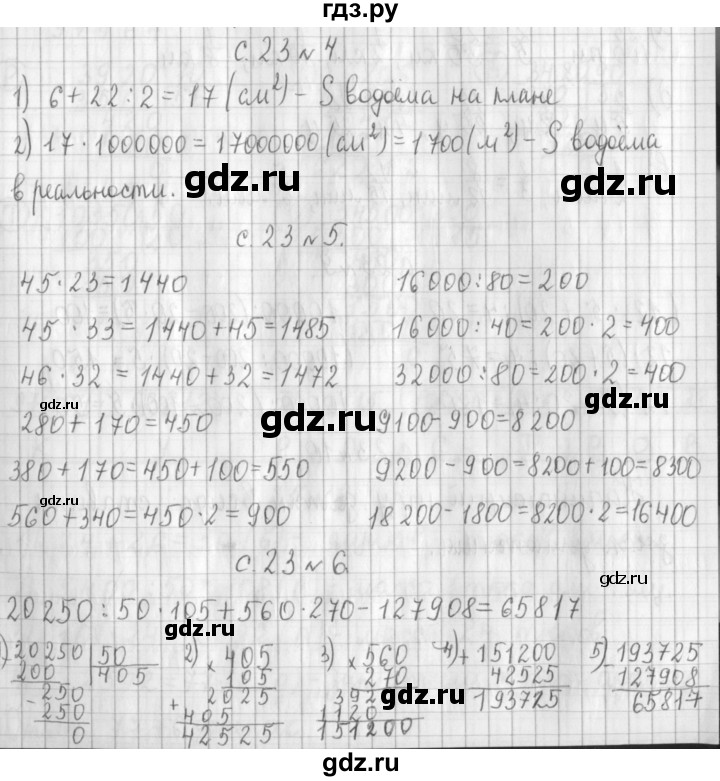 гдз.ру
с. 23 № 4.
1) 6 + 22 : 2 = 17 (см²) – S водоёма на плане
2) 17 · 1000000 = 17000000 (см²) = 1700 (м²) – S водоёма
в реальности.
gdz.ru
gdz.ru
с. 23 № 5.
45 · 23 = 1440
16000 : 80 = 200
45 · 33 = 1440 + 45 = 1485
16000 : 40 = 200 · 2 = 400
46 · 32 = 1440 + 32 = 1472
32000 : 80 = 200 · 2 = 400
gdz.ru
gdz.ru
gdz.ru
280 + 170 = 450
9100 - 900 = 8200
380 + 170 = 450 + 100 = 550
9200 - 900 = 8200 + 100 = 8300
gdz.ru
560 + 340 = 450 · 2 = 900
18200 - 1800 = 8200 · 2 = 16400
с. 23 № 6.
gdz.ru
20250 : 50 · 105 + 560 · 270 - 127908 = 65817
gdz.ru
1) - 20250 | 50
200 405
- 250
250
0
2) × 405
105
2025
+ 405
42525
3) × 560
270
392
1120
151200
4) + 151200
42525
193725
5) - 193725
127908
65817
gdz.ru
gdz.ru